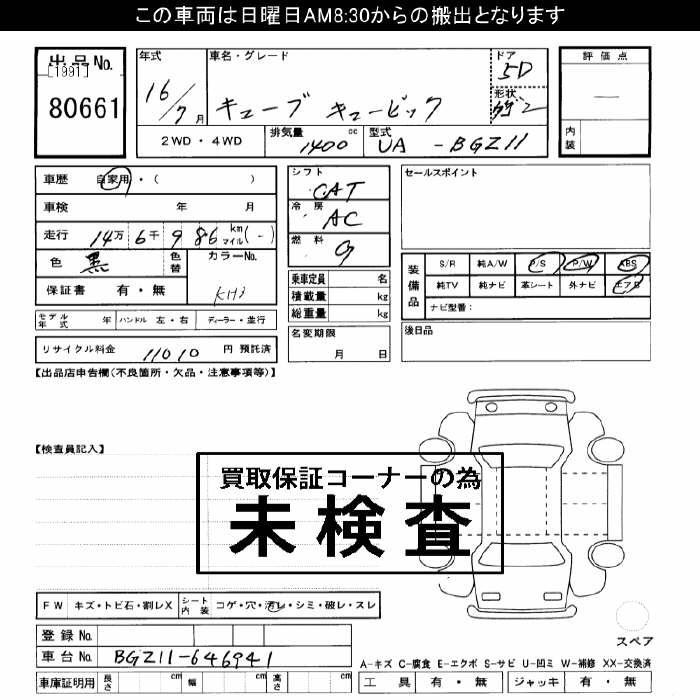 この車両は日曜日AM8:30からの搬出となります
出品No. [1991]
80661
年式 16/7月
車名・グレード キューブ キュービック
ドア 5D
形状
2WD・4WD
排気量 1400 cc
型式 UA - BGZ11
評価点 —
内装
車歴 自家用・( )
車検 年 月
走行 14万 6千 9 86 km マイル (-)
色 黒 色替 カラーNo. KH3
保証書 有・無
モデル年式 年 ハンドル 左・右 ディーラー・並行
リサイクル料金 11010 円 預託済
シフト CAT
冷房 AC
燃料 G
乗車定員 名
積載量 kg
総重量 kg
名変期限 月 日
セールスポイント
装備品 S/R 純A/W P/S P/W ABS
純TV 純ナビ 革シート 外ナビ エアB
ナビ型番：
後日品
【出品店申告欄(不良箇所・欠品・注意事項等)】
【検査員記入】
買取保証コーナーの為
未検査
FW キズ・トビ石・割レX シート内装 コゲ・穴・汚レ・シミ・破レ・スレ
登録No.
車台No. BGZ11-646941
車庫証明用 長さ cm 幅 cm 高さ cm
スペア
A-キズ C-腐食 E-エクボ S-サビ U-凹ミ W-補修 XX-交換済
工具 有・無 ジャッキ 有・無